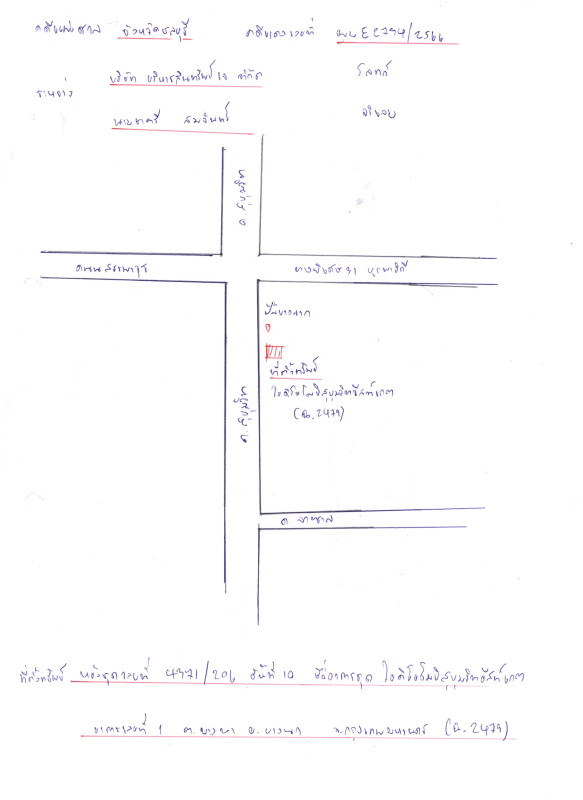 คดีแพ่ง ศาล จังหวัดชลบุรี คดีแดงเลขที่ ผบE2794/2566
บริษัท บริหารสินทรัพย์ จำกัด โจทก์
ระหว่าง
นาย สมจันทร์ จำเลย
ถ.สุขุมวิท
ถนนสรรพาวุธ ทางพิเศษ บูรพาวิถี
ปั๊มบางจาก
ที่ตั้งทรัพย์
ไอดีโอโมบิสุขุมวิทอีสท์เกต
(ฉ.2479)
ถ.สุขุมวิท
ถ. ลาซาล
ที่ตั้งทรัพย์ ห้องชุดเลขที่ 4371/206 ชั้นที่ 10 ชื่ออาคารชุด ไอดีโอโมบิสุขุมวิทอีสท์เกต
อาคารเลขที่ 1 ต.บางนา อ.บางนา จ.กรุงเทพมหานคร (ฉ.2479)